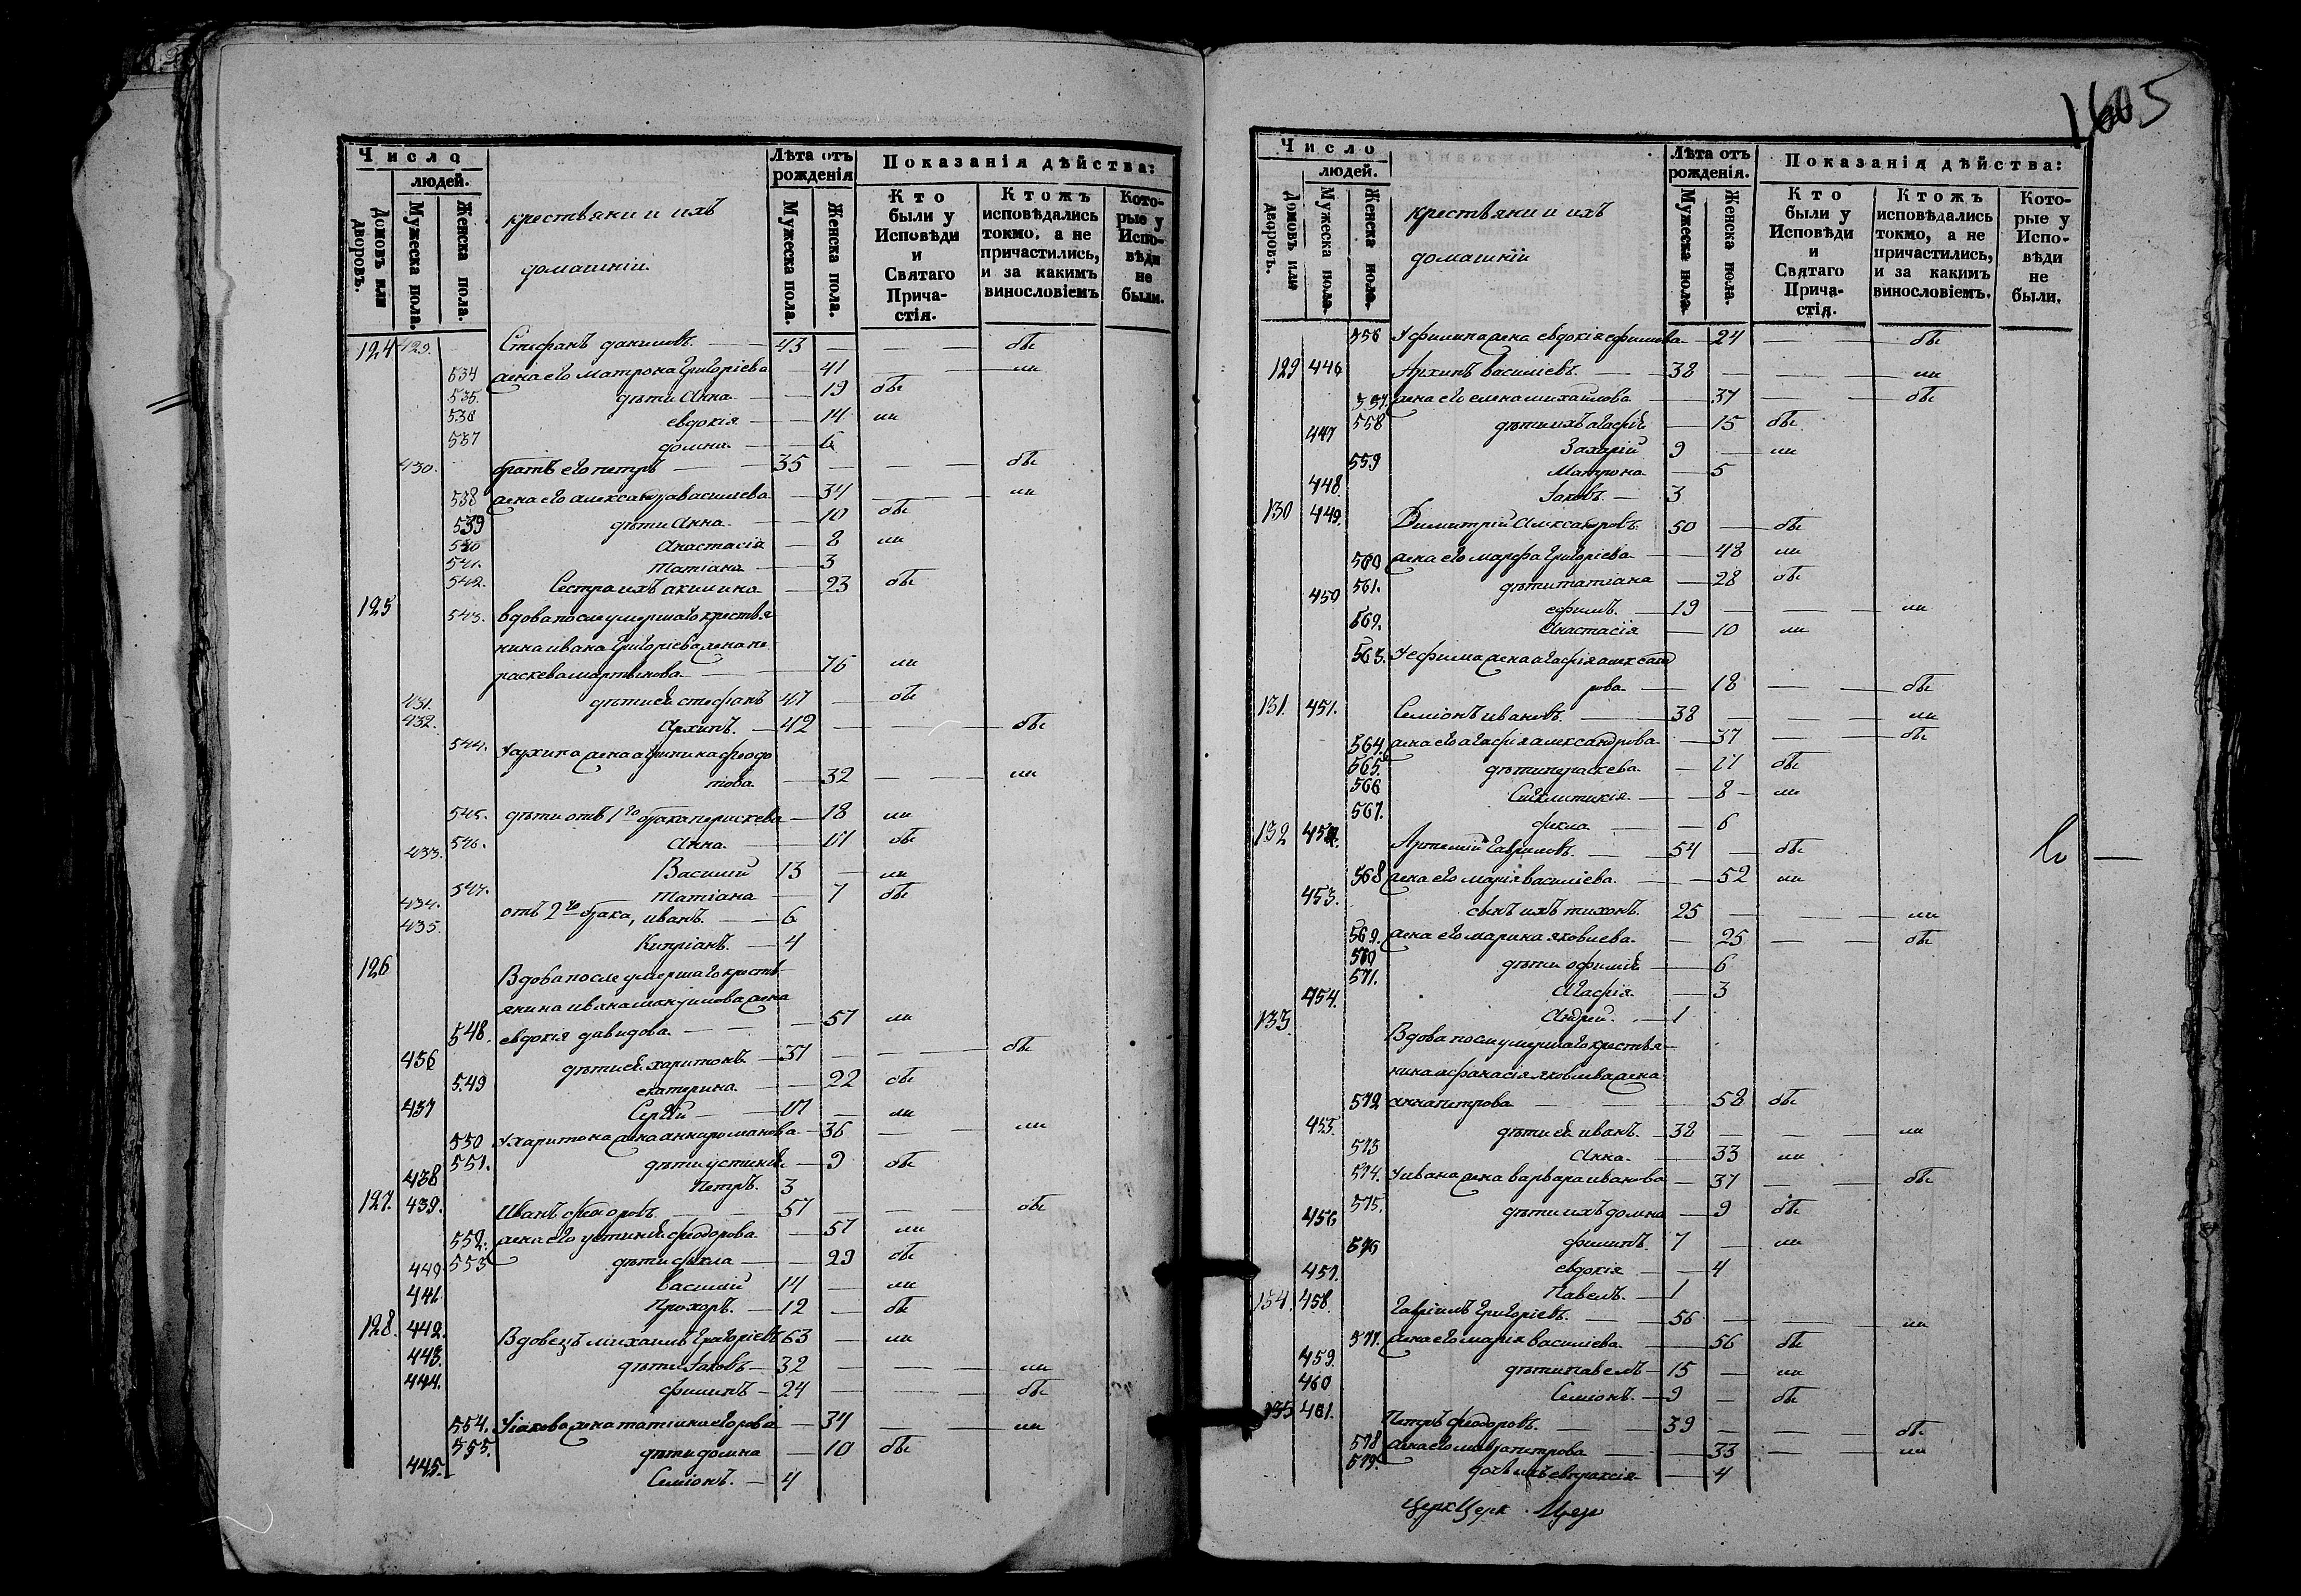 1605
Число
людей.
Домовъ или дворовъ.
Мужеска пола.
Женска пола.
крестьяни и ихъ
домашніи
Лѣта отъ рожденія
Мужеска пола.
Женска пола.
Показанія дѣйства:
Кто были у Исповѣди и Святаго Прича-стія.
Ктожъ исповѣдались токмо, а не причастились, и за какимъ винословіемъ
Кото-рые у Испо-вѣди не были.
124 429. Стефанъ даниловъ 43 — — — обе
534 жена его матрона григоріева — 41 — — ли
535. дѣти Анна — 19 обе
536 евдокія — 14 ли
537 домна — 6
430. братъ его петръ 35 — — — обе
538 жена его александра василева — 34 — — ли
539 дѣти Анна — 10 обе
540 Анастасія — 8 ли
541. татіана — 3
542. Сестра ихъ акилина — 23 обе
125 543. вдова после умершаго крестья
нина ивана григоріева жена па
раскева мартынова — 76 ли
431. дѣти ей стефанъ 47 — обе
432. Архипъ. 42 — — — обе
544. У архипа жена агрипина феодо
това — 32 — — ли
545. дѣти отъ 1го брака параскева — 18 ли
546. Анна. — обе
433. Василій 13 — ли
547. татіана — 7 обе
434. отъ 2го брака, иванъ. 6
435. Кипріанъ. 4
126 Вдова после умершаго кресть
янина ивана жена
548. евдокія давидова. — 57 ли
436 дѣти ей харитонъ 37 — — — обе
549 екатерина. — 22 обе
437 Сергій 17 — ли
550 У харитона жена анна романова — 36 — — ли
551. дѣти устинія — 9 обе
438 Петръ. 3
127. 439. Иванъ феодоровъ 57 — — — обе
552. жена его устинія феодорова — 57 ли
553 дѣти фекла — 29 обе
440 василій 14 — ли
441 Прохоръ. 12 — обе
128. 442. Вдовецъ михаилъ григоріевъ 63 — ли
443. дѣти Іаковъ 32 — — — ли
444. филипъ 24 — — — обе
554. У іакова жена татіана егорова — 34 — — ли
555. дѣти домна — 10 обе
445. Семіонъ. 4
Число
людей.
Домовъ или дворовъ.
Мужеска пола
Женска пола.
крестьяни и ихъ
домашніи
Лѣта отъ рожденія.
Мужеска пола.
Женска пола.
Показанія дѣйства:
Кто были у Исповѣди и Святаго Прича-стія.
Ктожъ исповѣдались токмо, а не причастились, и за какимъ винословіемъ.
Кото-рые у Испо-вѣди не были.
556 У филипа жена евдокія ефимова — 24 — — обе
129 446 Архипъ василіевъ. 38 — — — ли
557. жена его елена михаилова — 37 — — обе
558 дѣти ихъ агафія — 15 обе
447 Захарій 9 — ли
559 Матрона — 5
448. Іаковъ 3
130 449. Димитрій александровъ 50 — обе
560 жена его марфа григоріева — 48 ли
561. дѣти татіана — 28 обе
450 ефимъ. 19 — — — ли
562. Анастасія — 10 ли
563. У ефима жена агафія александ
рова — 18 — — обе
131. 451. Семіонъ ивановъ. 38 — — — ли
564. жена его агафія александрова — 37 — — обе
565. дѣти параскева. — 11 обе
566 Сигклитикія. — 8 ли
567. фекла — 6
132 452. Артемій гавриловъ. 54 — обе
568 жена его марія василіева. — 52 ли
453. сынъ ихъ тихонъ. 25 — — — ли
569. жена его марина яковлева. — 25 — — обе
570 дѣти офимія — 6
571. Агафія. — 3
454. Андрей. 1
133. Вдова после умершаго крестья
нина афанасія яковлева жена
572 анна петрова — 58 обе
455. дѣти ей иванъ. 32 — — — ли
573 Анна. — 33 ли
574. У ивана жена варвара иванова — 37 — — обе
575. дѣти ихъ домна — 9 обе
456 филипъ. 7 — ли
576 евдокія — 4
457. Павелъ. 1
134. 458. Гавріилъ григоріевъ. 56 — — — ли
577. жена его марія василіева. — 56 обе
459. дѣти павелъ 15 — ли
460 Семіонъ. 9 — обе
135 461. Петръ феодоровъ. 39 — — — обе
578 жена его мавра петрова — 33 — — ли
579. дочь ихъ евпраксія — 4